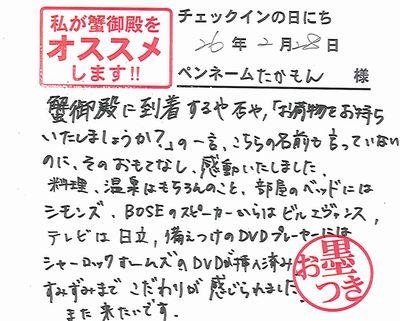 私が蟹御殿を
オススメ
します!!
チェックインの日にち
26年2月28日
ペンネームたかもん 様
蟹御殿に到着するや否や、「お荷物をお持ち
いたしましょうか?」の一言、こちらの名前も言っていない
のに、そのおもてなし、感動いたしました。
料理、温泉はもちろんのこと、部屋のベッドには
シモンズ、BOSEのスピーカーからはビルエヴァンス,
テレビは日立,備えつけのDVDプレーヤーには
シャーロックホームズのDVDが挿入済み
すみずみまでこだわりが感じられました。
また来たいです。
お墨つき